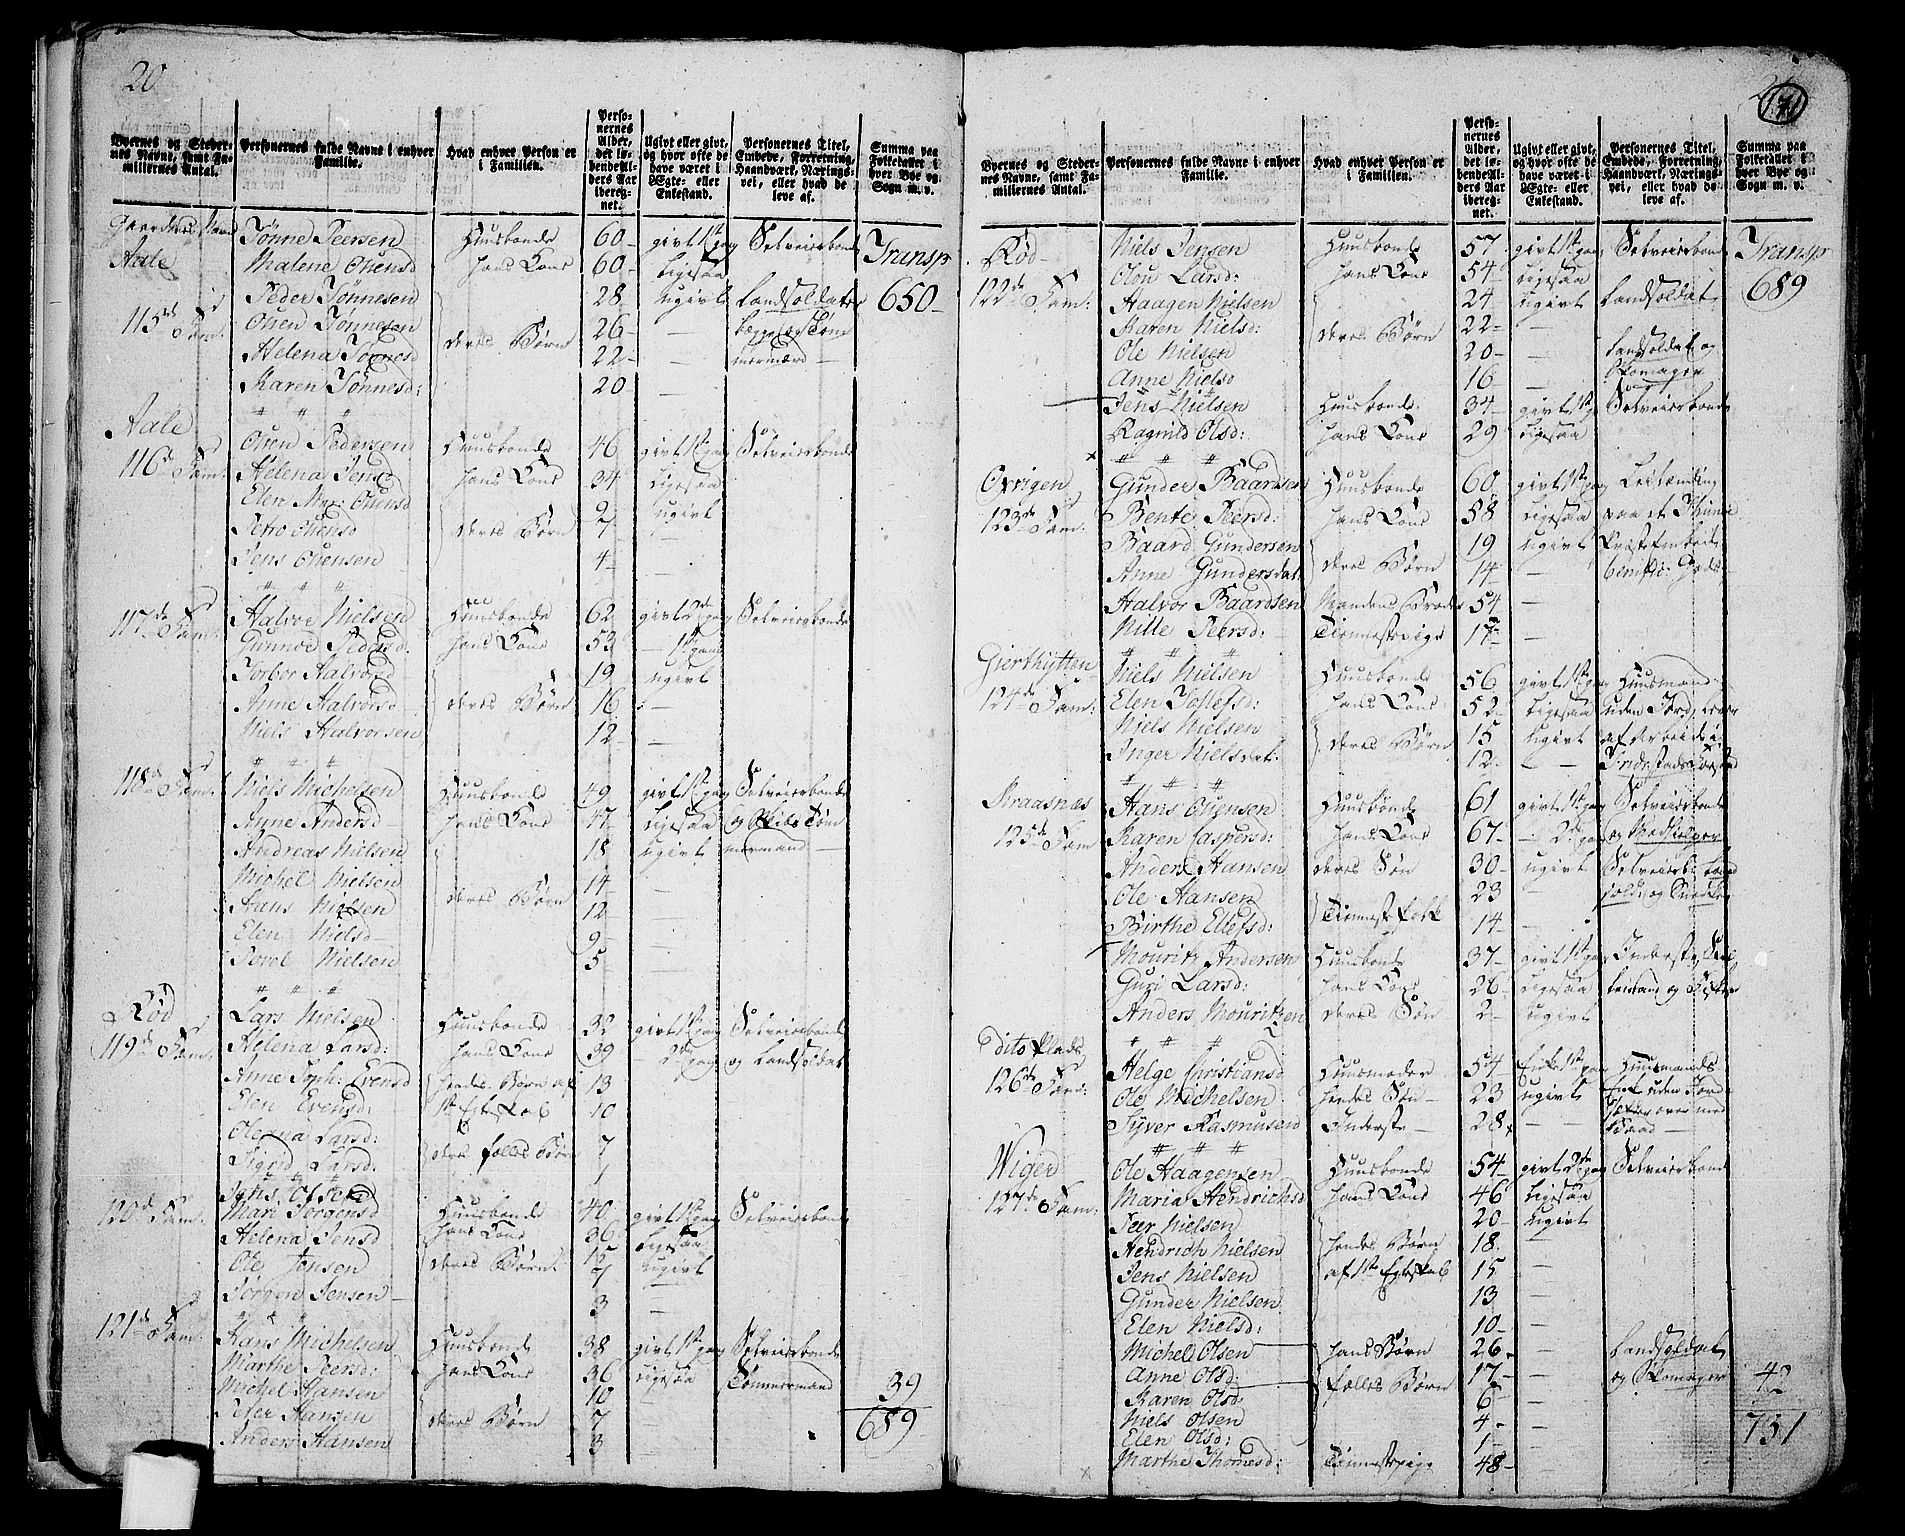 20
Byernes og Stedernes Navne, samt Familiernes Antal.
Personernes fulde Navne i enhver Familie.
Hvad enhver Person er i Familien.
Personernes Alder, det løbende Alders Aar iberegnet.
Ugivt eller givt, og hvor ofte de have været i Egte- eller Enkestand.
Personernes Titel, Embede, Forretning, Haandværk, Næringsvei, eller hvad de leve af.
Summa paa Folketallet i hver Bye og Sogn m. v.
Tønne Peersen Huusbonde 60 givt 1st gang Selveierbonde Transp
Aale Malene Olsensd hans Kone 60 ligesaa
115de Fam: Peder Tønnesen 28 ugivt Landsoldater 650
Olsen Tønnesen deres Børn 26 — begge og Tøm
Helena Tønnesd 22 — mermænd
Karen Tønnesd: 20 —
Aale
116de Fam: Peder­sen Huusbonde 46 givt 1st gang Selveierbonde
Helena Jensd hans Kone 34 ligesaa
Elen 9 ugivt
deres Børn 7 —
Jens 4 —
117de Fam: Halvor Nielsen Huusbonde 62 givt 2de gang Selveierbonde
Gunnoe Pedersd. hans Kone 53 — 1st gang
Torbor Halvorsd 19 ugivt
Anne Halvorsd deres Børn 16 —
Niels Halvorsen 12 —
118de Fam: Niels Michelsen Huusbonde 49 givt 1st gang Selveierbonde
Anne Andersd hans Kone 47 ligesaa og Skibs Tøm
Andreas Nielsen 18 ugivt mermand
Michel Nielsen 14 —
Hans Nielsen deres Børn 12 —
Elen Nielsd 9 —
Povel Nielsen 5 —
Rød
119de Fam: Lars Nielsen Huusbonde 32 givt 1st gang Selveierbonde
Helena Larsd: hans Kone 39 — 2de gang og Landsoldat
Anne Soph: Evensd hendes Børn af 13
Elen Evensd: 1st Egteskab 10
Oleana Larsd: deres fælles Børn 7
Sigrid Larsd: 1
120de Fam: Jens Olsen Huusbonde 40 givt 1st gang Selveierbonde
Mari Jørgensd hans Kone 36 ligesaa
Helena Jensd deres Børn 12 ugivt
Ole Jensen 7 —
Jørgen Jensen 3 —
121de Fam: Hans Michelsen Huusbonde 38 givt 1st gang Selveierbonde
Marthe Peersd: hans Kone 36 ligesaa Tømmermand
Michel Hansen 10 39
Peter Hansen deres Børn 7 689
Anders Hansen 3
171
Byernes og Stedernes Navne, samt Familiernes Antal.
Personernes fulde Navne i enhver Familie.
Hvad enhver Person er i Familien.
Personernes Alder, det løbende Alders Aar iberegnet.
Ugivt eller givt, og hvor ofte de have været i Egte- eller Enkestand.
Personernes Titel, Embede, Forretning, Haandværk, Næringsvei, eller hvad de leve af.
Summa paa Folketallet i hver Bye og Sogn m. v.
Rød Niels Jensen Huusbonde 57 givt 1st gang Selveierbonde Transp
122de Fam: Olou Larsd: hans Kone 54 ligesaa 689
Haagen Nielsen 24 ugivt Landsoldat
Karen Nielsd: deres Børn 22 —
Ole Nielsen 20 — Landsoldat og
Anne Nielsd 16 — Skomager
Jens Nielsen Huusbonde 34 givt 1st g Selveierbonde
Ragnild Olsd: hans Kone 29 ligesaa
Gunder Baardsen Huusbonde 60 givt 1st gang Leilænding
123de Fam: Bente Peersd: hans Kone 58 ligesaa paa et
Baard Gundersen 19 ugivt Præste Embede
Anne Gundersdat deres Børn 14 — benifi: Gods
Halvor Baardsen Mandens Broder 54 —
Nille Peersd: Tienestepige 17 —
Gierthytten
124de Fam: Niels Nielsen Huusbonde 56 givt 1st gang Huusmand
Elen Tollefsd: hans Kone 52 ligesaa uden Jord, lever
Niels Nielsen deres Børn 15 ugivt af arbeide i
Inger Nielsdat: 12 —
Kraasnæs Hans Huusbonde 61 givt 1st gang Selveierbonde
125de Fam Karen Caspersd: hans Kone 67 — 2de gang og
Anders Hansen deres Søn 30 ugivt
Ole Hansen Tienestefolk 23
Birthe Ellefsd: 14 —
Mouritz Andersen Huusbonde 37 givt 1st gang
Guri Larsd: hans Kone 26 ligesaa og Fisker
Anders Mouritzen deres Søn 2 ugivt
Dito Plads
126de Fam: Helge Christiansd Huusmoder 54 Enke 1st gang Huusmands
Ole Michelsen hendes Søn 23 ugivt Enke uden Jord
Syver Rasmusend Inderste 28 over med
Baad
Wiger Ole Haagensen Huusbonde 54 givt 2de gang Selveierbonde
127de Fam: Maria Hendrichsd hans Kone 46 ligesaa
Peer Nielsen 20 ugivt
Hendrich Nielsen hendes Børn 18 —
Jens Nielsen af 1st Egteskab 15 —
Gunder Nielsen 13 —
Elen Nielsd: 10 —
Michel Olsen hans Børn 26 — Landsoldat
Anne Olsd: fælles Børn 17 — og Skomager 42
Karen Olsd: 6 —
Niels Olsen 4 — 731
Elen Olsd: 1 —
Marthe Thomesd: Tienestepige 48 —